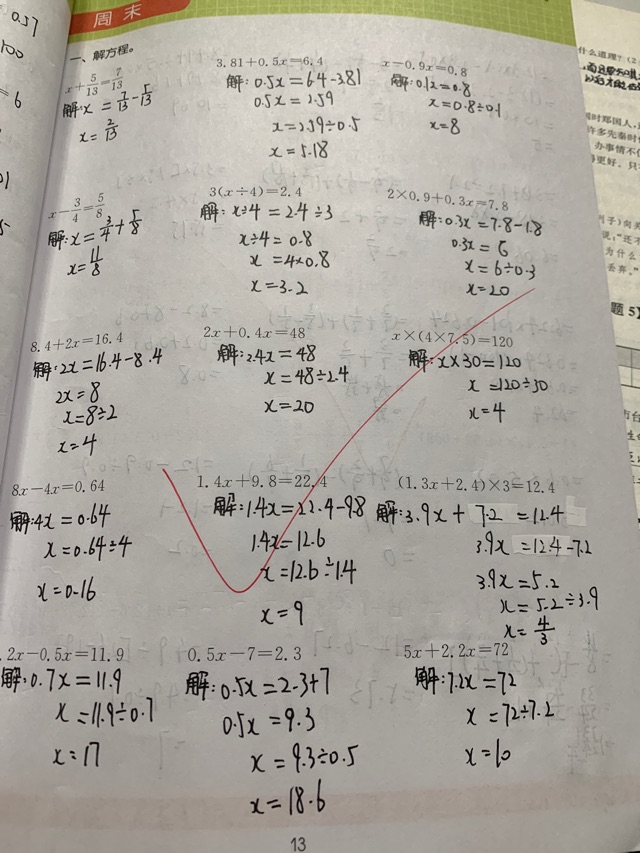 周末
一、解方程。
x+5/13=7/13
解:x=7/13-5/13
x=2/13
3.81+0.5x=6.4
解:0.5x=6.4-3.81
0.5x=2.59
x=2.59÷0.5
x=5.18
x-0.9x=0.8
解:0.1x=0.8
x=0.8÷0.1
x=8
x-3/4=5/8
解:x=3/4+5/8
x=11/8
3(x÷4)=2.4
解:x÷4=2.4÷3
x÷4=0.8
x=4×0.8
x=3.2
2×0.9+0.3x=7.8
解:0.3x=7.8-1.8
0.3x=6
x=6÷0.3
x=20
8.4+2x=16.4
解:2x=16.4-8.4
2x=8
x=8÷2
x=4
2x+0.4x=48
解:2.4x=48
x=48÷2.4
x=20
x×(4×7.5)=120
解:x×30=120
x=120÷30
x=4
8x-4x=0.64
解:4x=0.64
x=0.64÷4
x=0.16
1.4x+9.8=22.4
解:1.4x=22.4-9.8
1.4x=12.6
x=12.6÷1.4
x=9
(1.3x+2.4)×3=12.4
解:3.9x+7.2=12.4
3.9x=12.4-7.2
3.9x=5.2
x=5.2÷3.9
x=4/3
.2x-0.5x=11.9
解:0.7x=11.9
x=11.9÷0.7
x=17
0.5x-7=2.3
解:0.5x=2.3+7
0.5x=9.3
x=9.3÷0.5
x=18.6
5x+2.2x=72
解:7.2x=72
x=72÷7.2
x=10
13